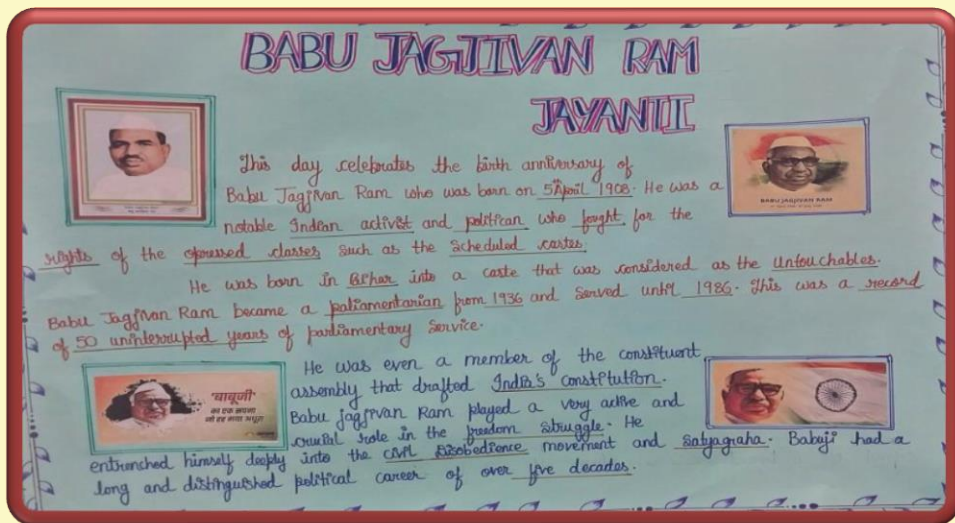 BABU JAGJIVAN RAM
JAYANTI
This day celebrates the birth anniversary of
Babu Jagjivan Ram who was born on 5April 1908. He was a
notable Indian activist and politican who fought for the
rights of the opressed classes such as the scheduled castes.
He was born in Bihar into a caste that was considered as the untouchables.
Babu Jagjivan Ram became a paliamentarian from 1936 and served until 1986. This was a record
of 50 uninterrupted years of parliamentary service.
BABU JAGJIVAN RAM
'बाबूजी'
का एक सपना
जो रह गया अधूरा
He was even a member of the constituent
assembly that drafted India's constitution.
Babu jagjivan Ram played a very active and
crucial role in the freedom struggle. He
entrenched himself deeply into the civil disobedience movement and satyagraha. Babuji had a
long and distinguished political career of over five decades.